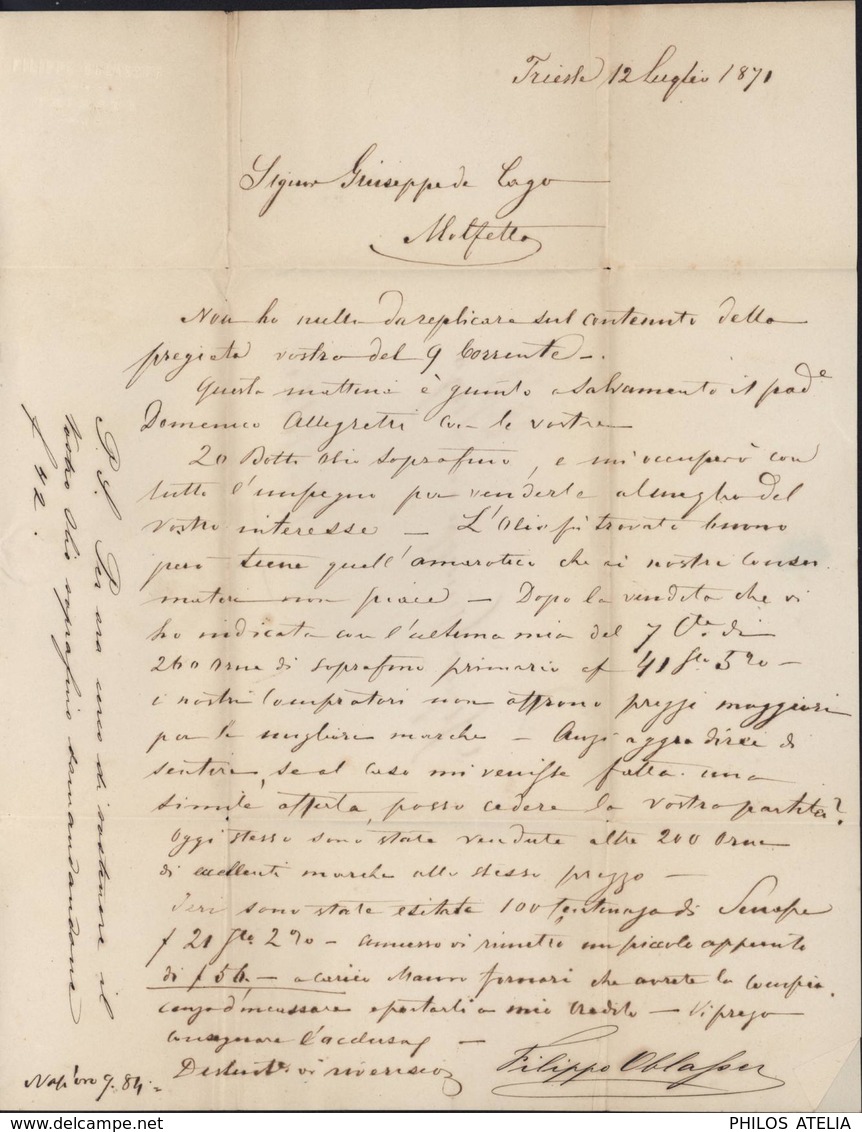 Trieste 12 Luglio 1871
Signor Giuseppe de Cago
Molfetta
Non ho nulla da replicare sul contenuto della
pregiata vostra del 9 Corrente -.
Questa mattina è giunto a salvamento il pad.e
Domenico Allegretti con le vostre
20 Botti Olio soprafino, e mi occuperò con
tutto l'impegno per venderle al meglio del
Vostro interesse — L'Olio fu trovato buono
però tiene quell'amarotico che ai nostri consu-
matori non piace — Dopo la vendita che vi
ho indicata con l'ultima mia del 7 Cte di
260 orne di soprafino primario a f 41 Sto 5% —
i nostri Compratori non offrono prezzi maggiori
per le migliori marche — Anzi aggradirei di
sentire, se al caso mi venisse fatta una
simile offerta, posso cedere la vostra partita?
Oggi stesso sono state vendute altre 200 Orne
di eccellenti marche allo stesso prezzo —
Ieri sono state esitate 100 Centinaja di
f 21 Sto 2% — annesso vi rimetto un piccolo appunto
di f 56.— a carico Mauro Fornari che avrete la compia-
cenza d'incassare e portarli a mio credito — Vi prego
consegnare l'acclusa
Distint. vi riverisco
Filippo Oblasser
Nap.i oro 9.84.=
P.S. Per ora cerco di sostenere il
Vostro Olio soprafino domandandone
f 42.
PHILOS ATELIA